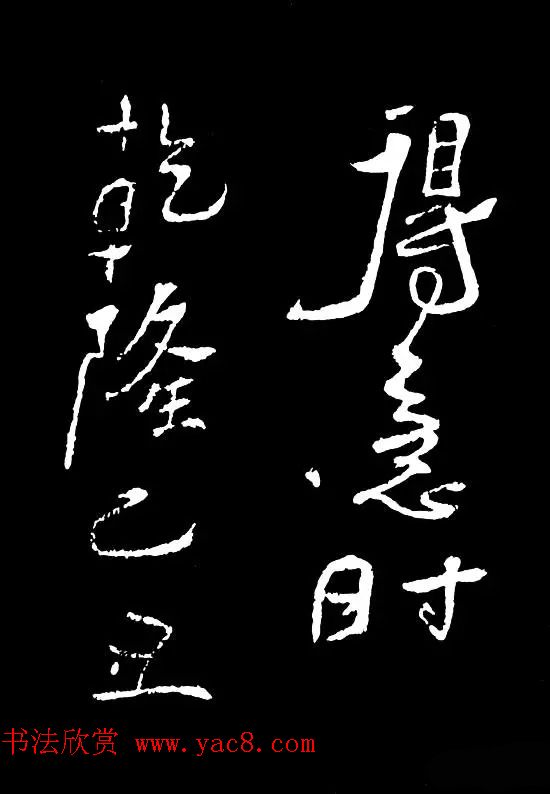 得意时
乾隆己丑
书法欣赏 www.yac8.com